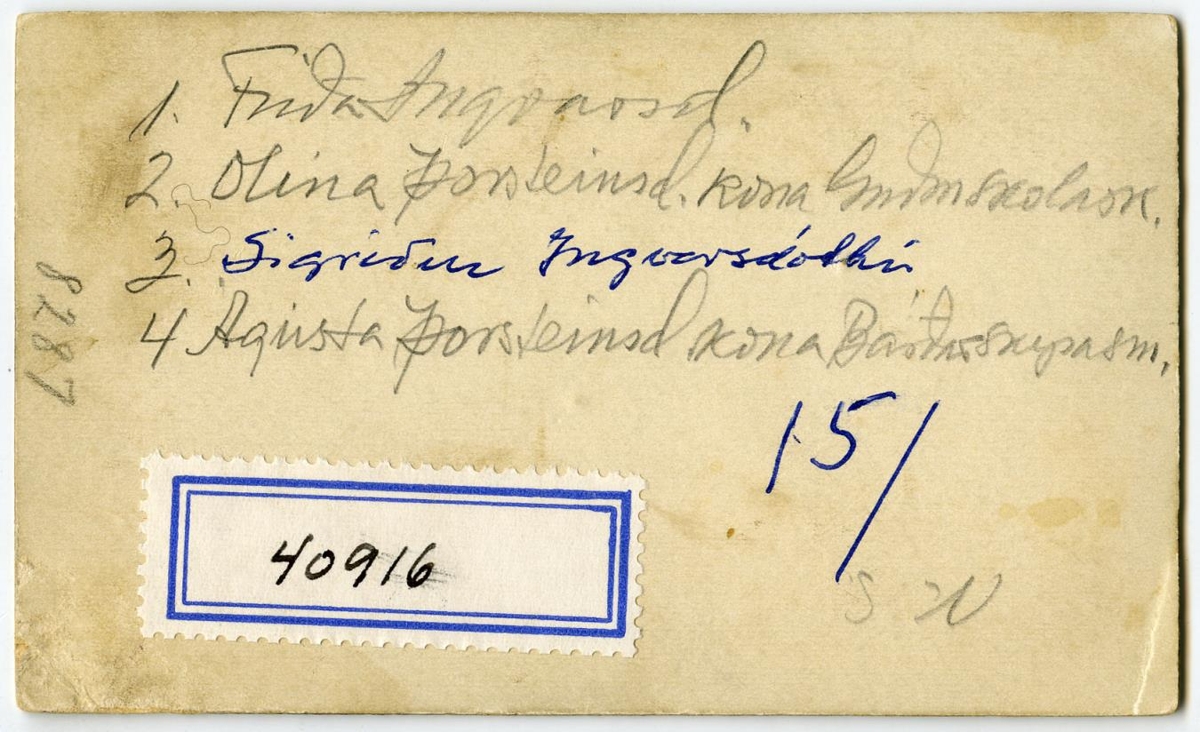 1. Fríða Ingvarsd.
2. Olína Þorsteinsd. kona Guðm skólask.
3. Sigríður Ingvarsdóttir
4 Agústa Þorsteinsd. kona Bárðar skipasm.
15/
40916
S. N
8287